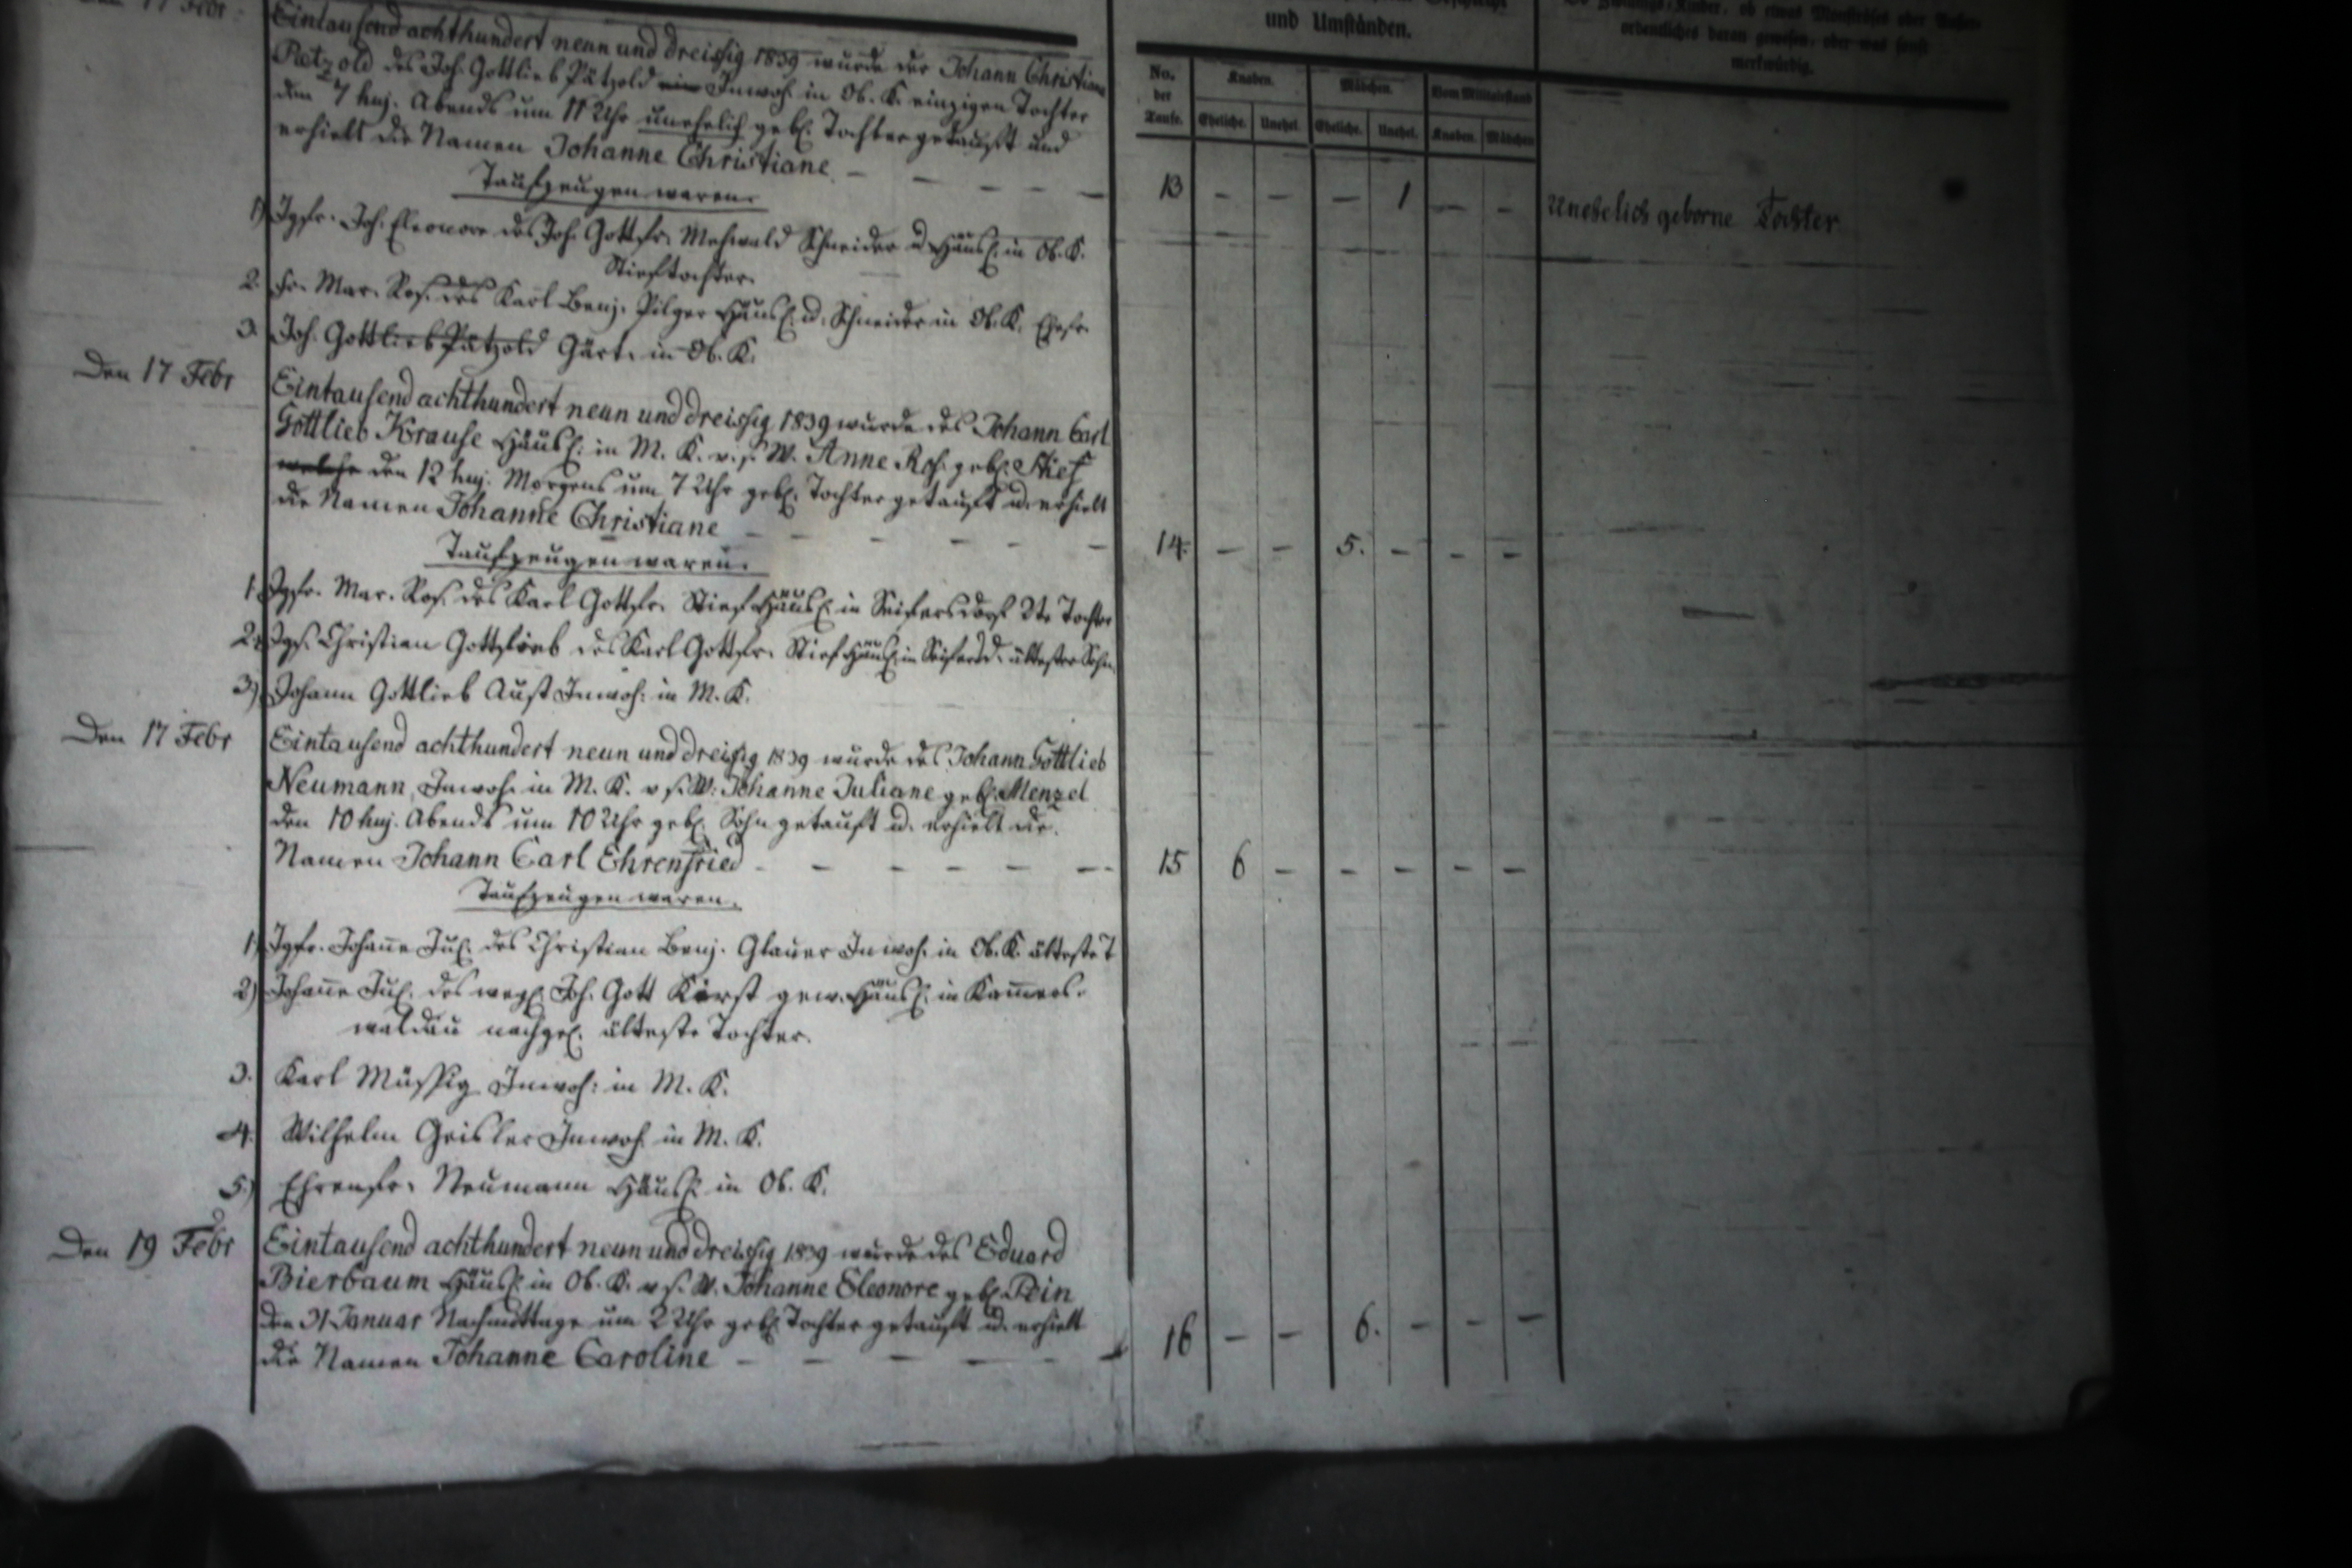 Den 17 Febr:
Eintausend achthundert neun und dreissig 1839 wurde der Johann Christiane
Pätzold des Joh. Gottlieb Pätzold Inwoh. in Ob. K. einzigen Tochter
den 7 huj. Abends um 11 Uhr unehelich geb. Tochter getauft und
erhielt die Namen Johanne Christiane. — — — — —
Taufzeugen waren.
1) Jgfr. Joh. Eleonore des Joh. Gottfr. Mehwald Schneider u. Häusl. in Ob. K.
Stieftochter.
2. Fr. Mar. Ros. des Karl Benj. Pilger Häusl. u. Schneider in Ob. K. Ehefr.
3. Joh. Gottlieb Pätzold Gärt. in Ob. K.
Den 17 Febr
Eintausend achthundert neun und dreissig 1839 wurde des Johann Carl
Gottlieb Krause Häusl. in M. K. v. s. W. Anne Ros. geb. Stief
welche den 12 huj. Morgens um 7 Uhr geb. Tochter getauft u. erhielt
die Namen Johanne Christiane — — — — — —
Taufzeugen waren.
1. Jgfr. Mar. Ros. des Karl Gottfr. Stief Häusl. in Seifersdorf 2te Tochter
2. Jgs. Christian Gottlieb des Karl Gottfr. Stief Häusl. in Seifersd. ältester Sohn
3) Johann Gottlieb Aust Inwoh: in M. K.
Den 17 Febr
Eintausend achthundert neun und dreissig 1839 wurde des Johann Gottlieb
Neumann, Inwoh. in M. K. v s. W. Johanne Juliane geb. Menzel
den 10 huj. Abends um 10 Uhr geb. Sohn getauft u. erhielt die
Namen Johann Carl Ehrenfried — — — — — —
Taufzeugen waren.
1) Jgfr. Johanne Jul. des Christian Benj. Glauer Inwoh. in Ob. K. älteste T
2) Johanne Jul. des weyl. Joh. Gott Kirst gew. Häusl. in Kammers-
waldau nachgel. älteste Tochter.
3. Karl Müssig Inwoh: in M. K.
4. Wilhelm Geisler Inwoh. in M. K.
5.) Ehrenfr. Neumann Häusl. in Ob. K.
Den 19 Febr
Eintausend achthundert neun und dreissig 1839 wurde des Eduard
Bierbaum Häusl. in Ob. K. v s. W. Johanne Eleonore geb.
den 31 Januar Nachmittags um 2 Uhr geb. Tochter getauft u. erhielt
die Namen Johanne Caroline — — — — — —
und Umständen.
ordentliches daran gewesen, oder was sonst
merkwürdig.
No. der Taufe. Knaben. Mädchen. Vom Militairstand
Eheliche. Unehel. Eheliche. Unehel. Knaben. Mädchen
13 — — — 1 — — Unehelich geborne Tochter
14. — — 5. — — —
15 6 — — — — —
16 — — 6. — — —